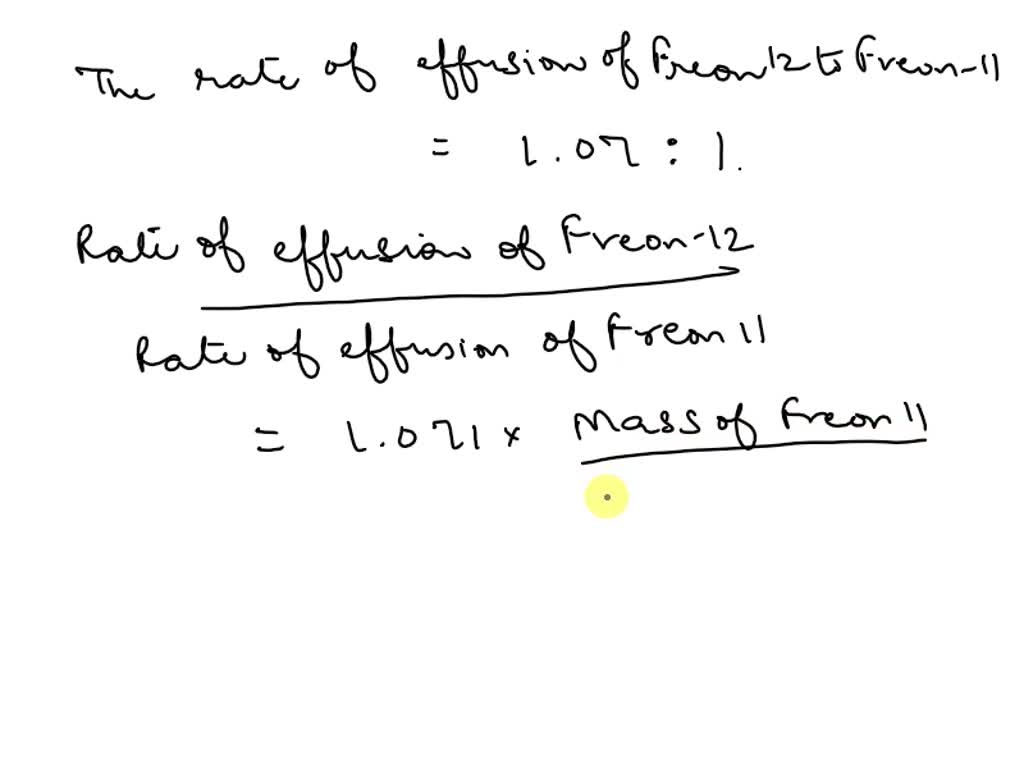 The rate of effusion of Freon 12 to Freon-11
= 1.07 : 1.
Rate of effusion of Freon-12
Rate of effusion of Freon 11
= 1.071 × Mass of Freon 11